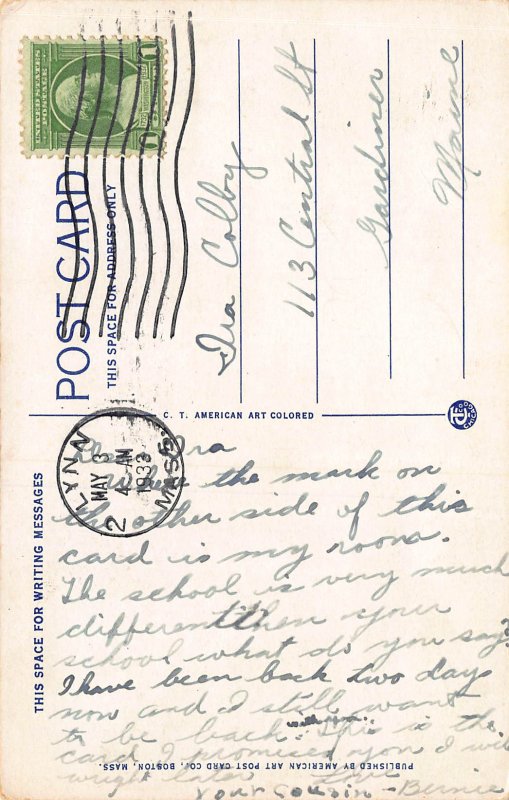 UNITED STATES
POSTAGE
1 1
POST CARD
THIS SPACE FOR ADDRESS ONLY
Ira Colby
113 Central St
Gardiner
Maine
C. T. AMERICAN ART COLORED
C.T. CO CHICAGO
LYNN
MAY 3
4 - AM
1933
MASS.
2
THIS SPACE FOR WRITING MESSAGES
Dear Ira
Where the mark on
the other side of this
card is my room.
The school is very much
different then your
school what do you say?
I have been back two days
now and I still want
to be back with you. This is the
card I promised you I will
wright later Love
Your Cousin - Bernie
PUBLISHED BY AMERICAN ART POST CARD CO., BOSTON, MASS.